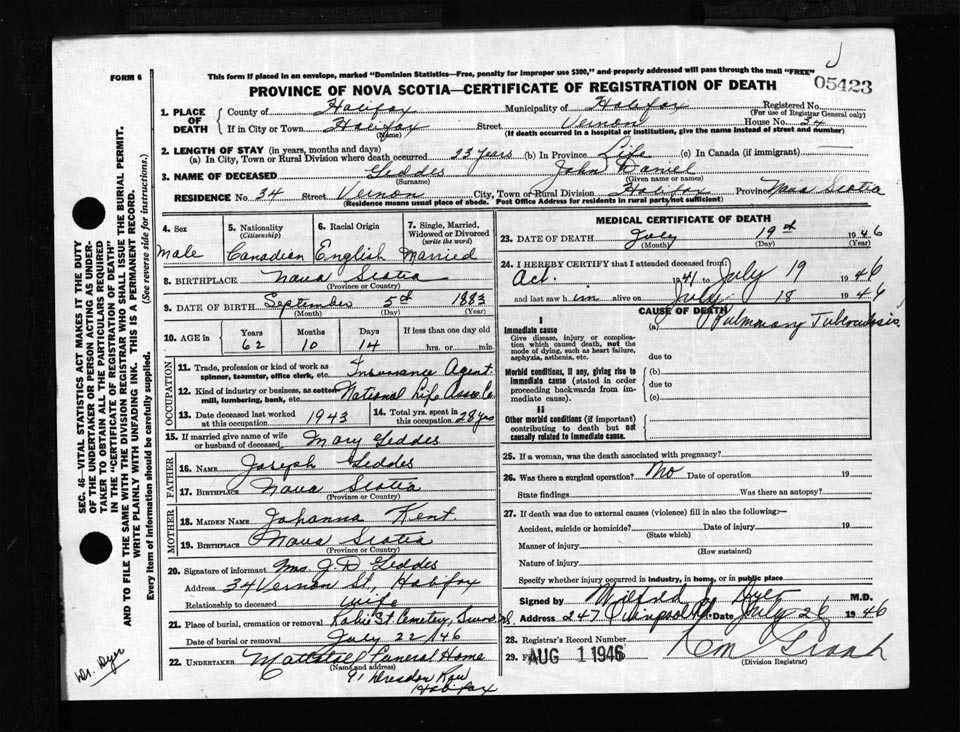 FORM 6
This form if placed in an envelope, marked "Dominion Statistics—Free, penalty for improper use $300," and properly addressed will pass through the mail "FREE"
05423
PROVINCE OF NOVA SCOTIA—CERTIFICATE OF REGISTRATION OF DEATH
1. PLACE OF DEATH County of Halifax Municipality of Halifax Registered No.
(For use of Registrar General only)
If in City or Town Halifax Street Vernon House No. 34
(Name) (If death occurred in a hospital or institution, give the name instead of street and number)
2. LENGTH OF STAY (in years, months and days)
(a) In City, Town or Rural Division where death occurred 23 years (b) In Province Life (c) In Canada (if immigrant) —
3. NAME OF DECEASED Geddes John Daniel
(Surname) (Given name or names)
RESIDENCE No. 34 Street Vernon City, Town or Rural Division Halifax Province Nova Scotia
(Residence means usual place of abode. Post Office Address for residents in rural parts not sufficient)
4. Sex 5. Nationality (Citizenship) 6. Racial Origin 7. Single, Married, Widowed or Divorced (write the word)
Male Canadian English Married
8. BIRTHPLACE Nova Scotia
(Province or Country)
9. DATE OF BIRTH September 5th 1883
(Month) (Day) (Year)
10. AGE in Years Months Days If less than one day old
62 10 14 hrs. or min.
OCCUPATION
11. Trade, profession or kind of work as spinner, teamster, office clerk, etc. Insurance Agent
12. Kind of industry or business, as cotton mill, lumbering, bank, etc. National Life Assce Co.
13. Date deceased last worked at this occupation 1943 14. Total yrs. spent in this occupation 28 yrs
15. If married give name of wife or husband of deceased Mary Geddes
FATHER
16. NAME Joseph Geddes
17. BIRTHPLACE Nova Scotia
(Province or Country)
MOTHER
18. MAIDEN NAME Johanna Kent.
19. BIRTHPLACE Nova Scotia
(Province or Country)
20. Signature of informant Mrs. J. D Geddes
Address 34 Vernon St, Halifax
Relationship to deceased wife
21. Place of burial, cremation or removal Cemetery,
Date of burial or removal July 22/46
22. UNDERTAKER Funeral Home
(Name and address)
91 Dresden Row
Halifax
MEDICAL CERTIFICATE OF DEATH
23. DATE OF DEATH July 19th 1946
(Month) (Day) (Year)
24. I HEREBY CERTIFY that I attended deceased from:
1941 to July 19 1946
and last saw him alive on July 18 1946
CAUSE OF DEATH
I
Immediate cause (a) Pulmonary Tuberculosis
Give disease, injury or complication which caused death, not the mode of dying, such as heart failure, asphyxia, asthenia, etc. due to
Morbid conditions, if any, giving rise to immediate cause (stated in order proceeding backwards from immediate cause). (b)
due to
(c)
II
Other morbid conditions (if important) contributing to death but not causally related to immediate cause.
25. If a woman, was the death associated with pregnancy?
26. Was there a surgical operation? No Date of operation 19
State findings Was there an autopsy?
27. If death was due to external causes (violence) fill in also the following:—
Accident, suicide or homicide? Date of injury 19
(State which)
Manner of injury
(How sustained)
Nature of injury
Specify whether injury occurred in industry, in home, or in public place
Signed by Wilfred J. Dyer M.D.
Address 247 Date July 26 1946
28. Registrar's Record Number
29. AUG 1 1946
(Division Registrar)
SEC. 46—VITAL STATISTICS ACT MAKES IT THE DUTY
OF THE UNDERTAKER OR PERSON ACTING AS UNDER-
TAKER TO OBTAIN ALL THE PARTICULARS REQUIRED
IN THE "CERTIFICATE OF REGISTRATION OF DEATH"
AND TO FILE THE SAME WITH THE DIVISION REGISTRAR WHO SHALL ISSUE THE BURIAL PERMIT.
WRITE PLAINLY WITH UNFADING INK. THIS IS A PERMANENT RECORD.
Every item of information should be carefully supplied. (See reverse side for instructions.)
Dr. Dyer